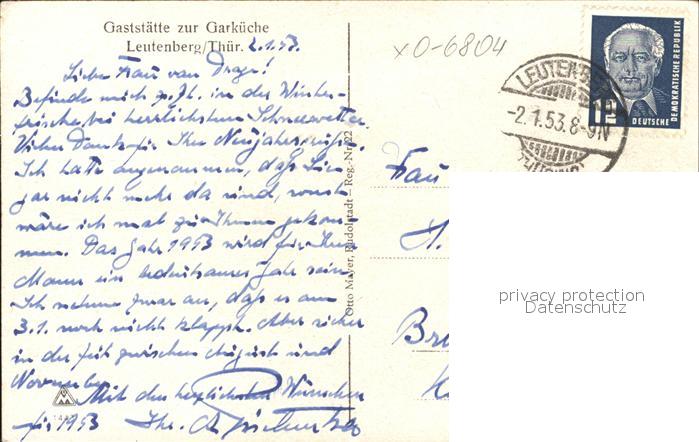 Gaststätte zur Garküche
Leutenberg/Thür. 2.1.53.
Liebe Frau van Drage!
Befinde mich z. Zt. in der Winter-
frische bei herrlichstem Schneewetter.
Vielen Dank für Ihre Neujahrs
Ich hatte angenommen, daß Sie
gar nicht mehr da sind, sonst
wäre ich mal zu Ihnen gekom-
men. Das Jahr 1953 wird für Ihren
Mann ein bedeutsames Jahr sein.
Ich nehme zwar an, daß es am
3.1. noch nicht klappt. Aber sicher
in der Zeit zwischen August und
November.
Mit den herzlichsten Wünschen
für 1953 Ihr
Otto Mayer, Rudolstadt Reg.-Nr.
x0-6804
LEUTENBERG
-2.1.53.8-9N
12
DEUTSCHE
DEMOKRATISCHE REPUBLIK
Frau
Br
privacy protection
Datenschutz